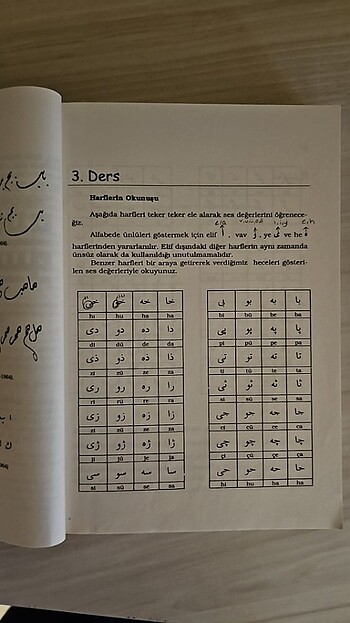 3. Ders
Harflerin Okunuşu
Aşağıda harfleri teker teker ele alarak ses değerlerini öğrenece-
ğiz.
Alfabede ünlüleri göstermek için elif ا , vav و , ye ى ve he ه
harflerinden yararlanılır. Elif dışındaki diğer harflerin aynı zamanda
ünsüz olarak da kullanıldığı unutulmamalıdır.
Benzer harfleri bir araya getirerek verdiğimiz heceleri gösteri-
len ses değerleriyle okuyunuz.
با به بو بى
bi bü be ba
پا په پو پى
pi pü pe pa
تا ته تو تى
ti tü te ta
ثا ثه ثو ثى
si sü se sa
جا جه جو جى
ci cü ce ca
چا چه چو چى
çi çü çe ça
حا حه حو حى
hi hu ha ha
خا خه خو خى
hı hu ha ha
دا ده دو دى
di dü de da
ذا ذه ذو ذى
zi zü ze za
را ره رو رى
ri rü re ra
زا زه زو زى
zi zü ze za
ژا ژه ژو ژى
ji jü je ja
سا سه سو سى
si sü se sa